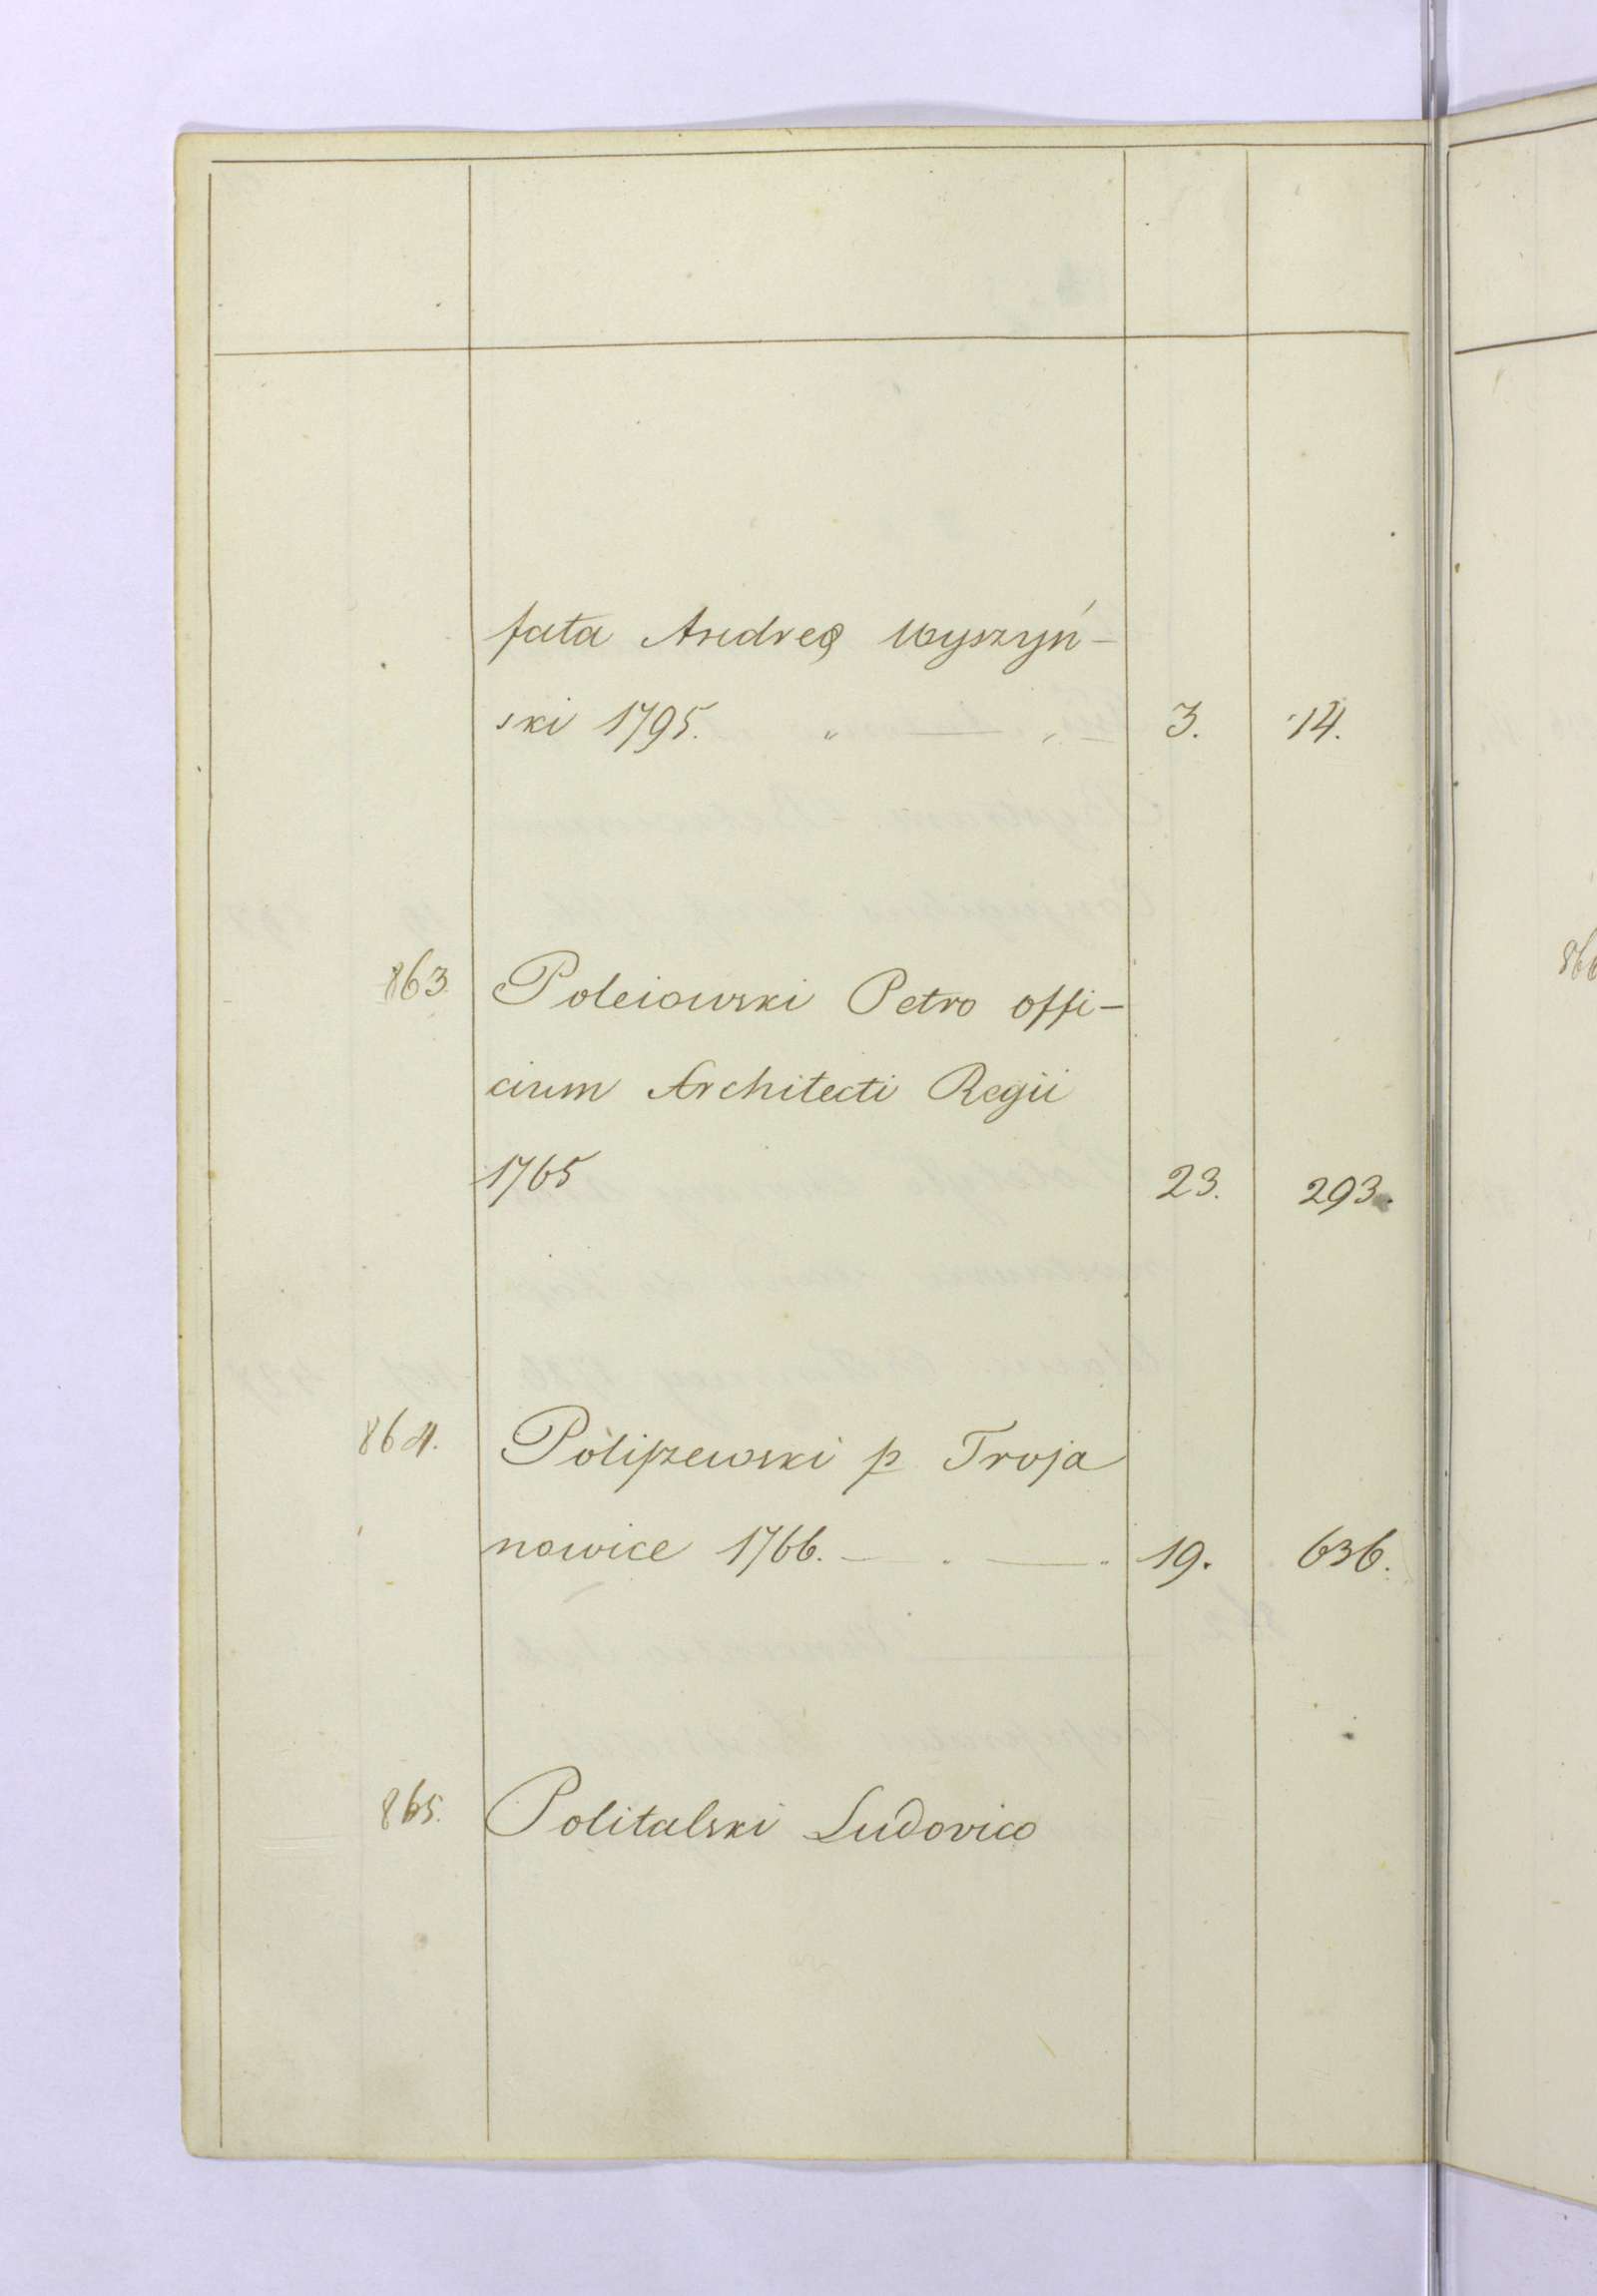 fata Andreę Wyszyń-
ski 1795. " — " 3. 14.
863 Poleiowski Petro offi-
cium Architecti Regii
1765 23. 293.
864. Poliszewski p Troja
nowice 1766. — . — . 19. 636.
865. Politalski Ludovico